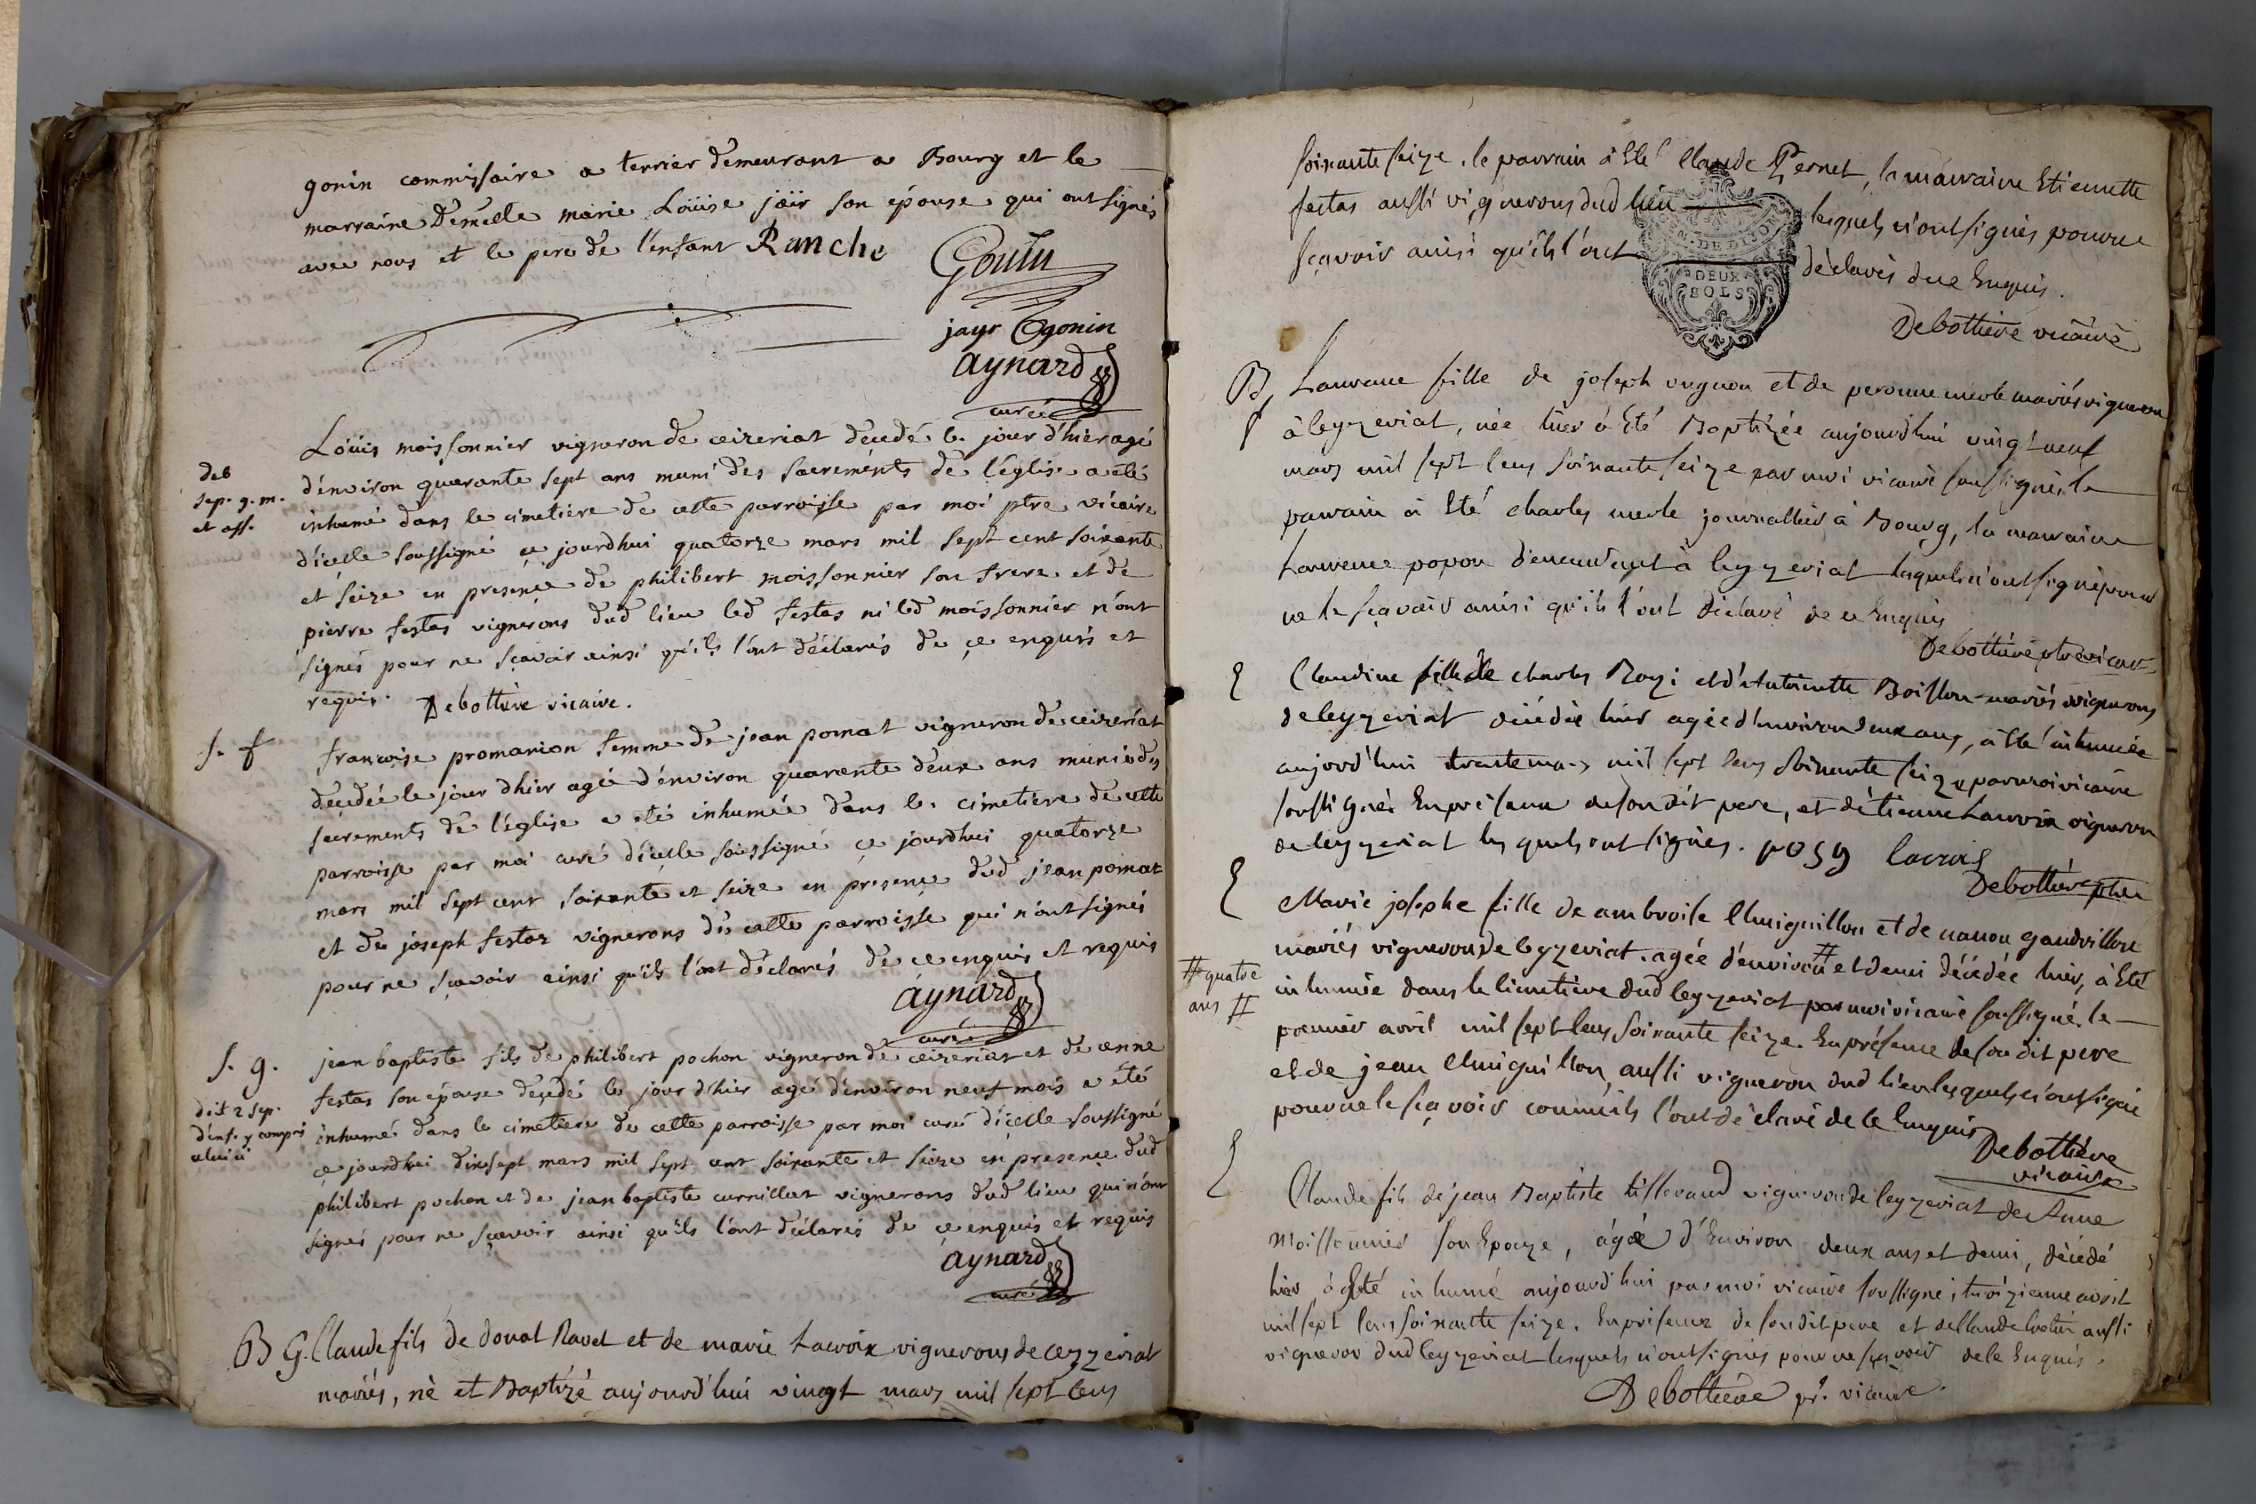 gonin commissaire a terrier demeurant a Bourg et la
marraine demelle marie Loüise jäir son épouse qui ont signés
avec nous et le pere de l'enfant Ranche
Goulu
jayr Egonin
aynard
curé
des
sep. g. m.
et ass.
Loüis moissonnier vigneron de ceizeriat décedé le jour d'hier agé
d'énviron quarante sept ans muni des sacreménts de l'église a eté
inhumé dans le cimetiére de cette parroisse par moi ptre vicaire
d'icelle soussigné ce jourdhui quatorze mars mil sept cent soixante
et seize en presence de philibert moissonnier son frere et de
pierre festas vignerons dud lieu led festas ni led moissonnier n'ont
signés pour ne sçavoir ainsi qu'ils l'ont déclarés de ce enquis et
requis. Debottiere vicaire.
s. f
francoise promanion femme de jean pomat vigneron de ceizeriat
décedée le jour dhier agée d'énviron quarante deux ans munie des
sacrements de l'église a eté inhumée dans le cimetiere de cette
parroisse par moi curé d'icelle soussigné ce jourdhui quatorze
mars mil sept cent soixante et seize en presence dud jean pomat
et de joseph festaz vignerons de cette parroisse qui n'ont signés
pour ne sçavoir ainsi qu'ils l'ont déclarés de ce enquis et requis
aynard
curé
s. g.
dit 2 sep.
d'enf. y compris
celui ci
jean baptiste fils de philibert pochon vigneron de ceizeriat et de anne
festas son épouse decedé le jour d'hier agé d'énviron neuf mois a été
inhumé dans le cimetiere de cette parroisse par moi curé d'icelle soussigné
ce jourdhui dixsept mars mil sept cent soixante et seize en presence dud
philibert pochon et de jean baptiste curnillat vignerons dud lieu qui n'ont
signés pour ne sçavoir ainsi qu'ils l'ont déclarés de ce enquis et requis
aynard
curé
B G. Claude fils de donat Ravet et de marie Lacroix vignerons de Cezzeriat
mariés, né et Baptizé aujourd'hui vingt mars mil sept Cens
soixante seize. le parrain a Eté Claude Pernet, la marraine Etiennette
festas aussi vignerons dud lieu lesquels n'ont signés pour ne
sçavoir ainsi qu'ils l'ont déclarés de ce Enquis.
DEUX
SOLS
Debottiere vicaire
B, f
Laurence fille de joseph et de peronne merle mariés vigneron
à Ceyzeriat, née hier à Eté Baptizée aujourdhui vingt neuf
mars mil sept Cens soixante seize par moi vicaire soussigné, le
parrain a Eté charles merle journallier à Bourg, la marraine
Laurence popon demeurant à Ceyzeriat lesquels n'ont signé pour
ne le sçavoir ainsi qu'ils l'ont déclaré de ce Enquis
Debottiere ptre vicaire
Claudine fille de charles Rozi et d'Antoinette Boisson mariés vignerons
de Ceyzeriat décédée hier agée d'Environ deux ans, a Eté inhumée
aujourd'hui trente mars mil sept Cens soixante seize par moi vicaire
soussigné En présence de son dit pere, et d'étienne Lacroix vigneron
de Ceyzeriat lesquels ont signés. rosy lacroix
Debottiere ptre
Marie josephe fille de ambroise Chuiguillon et de nanon gaudvillon
mariés vignerons de Ceyzeriat. agée d'environ # et demi décédée hier, à Eté
# quatre
ans #
inhumée dans le cimetière dud Ceyzeriat par moi vicaire soussigné. le
premier avril mil sept Cens soixante seize. En présence de son dit pere
et de jean Chuiguillon, aussi vigneron dud lieu lesquels n'ont signé
pour ne le sçavoir comme ils l'ont déclaré de ce Enquis
Debottiere
vicaire
Claude fils de jean Baptiste tisserand vigneron de Ceyzeriat de Anne
Moissonnier son Epouze, ágée d'Environ deux ans et demi, décédé
hier à Eté inhumé aujourd'hui par moi vicaire soussigné; troizieme avril
mil sept Cens soixante seize. En présence de son dit pere et de Claude aussi
vigneron dud Ceyzeriat lesquels n'ont signés pour ne sçavoir de ce Enquis.
Debottiere pr. vicaire.